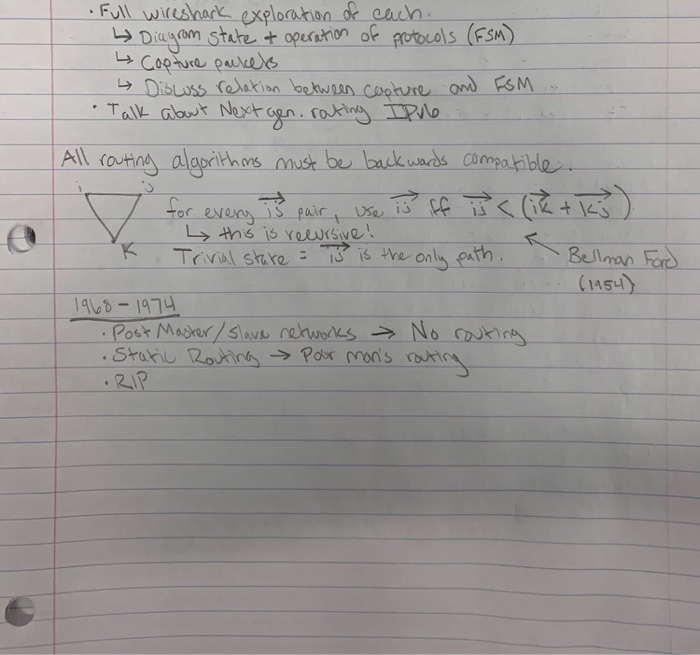 · Full wireshark exploration of each.
↳ Diagram state + operation of protocols (FSM)
↳ Capture packets
↳ Discuss relation between capture and FSM
· Talk about Next gen. routing IPv6
All routing algorithms must be backwards compatible.
i j
for every ij pair, use ij iff ij < (ik + kj)
↳ this is recursive!
K Trivial state = ij is the only path. Bellman Ford
(1954)
1968 - 1974
· Post Master/Slave networks → No routing
· Static Routing → Poor man's routing
· RIP